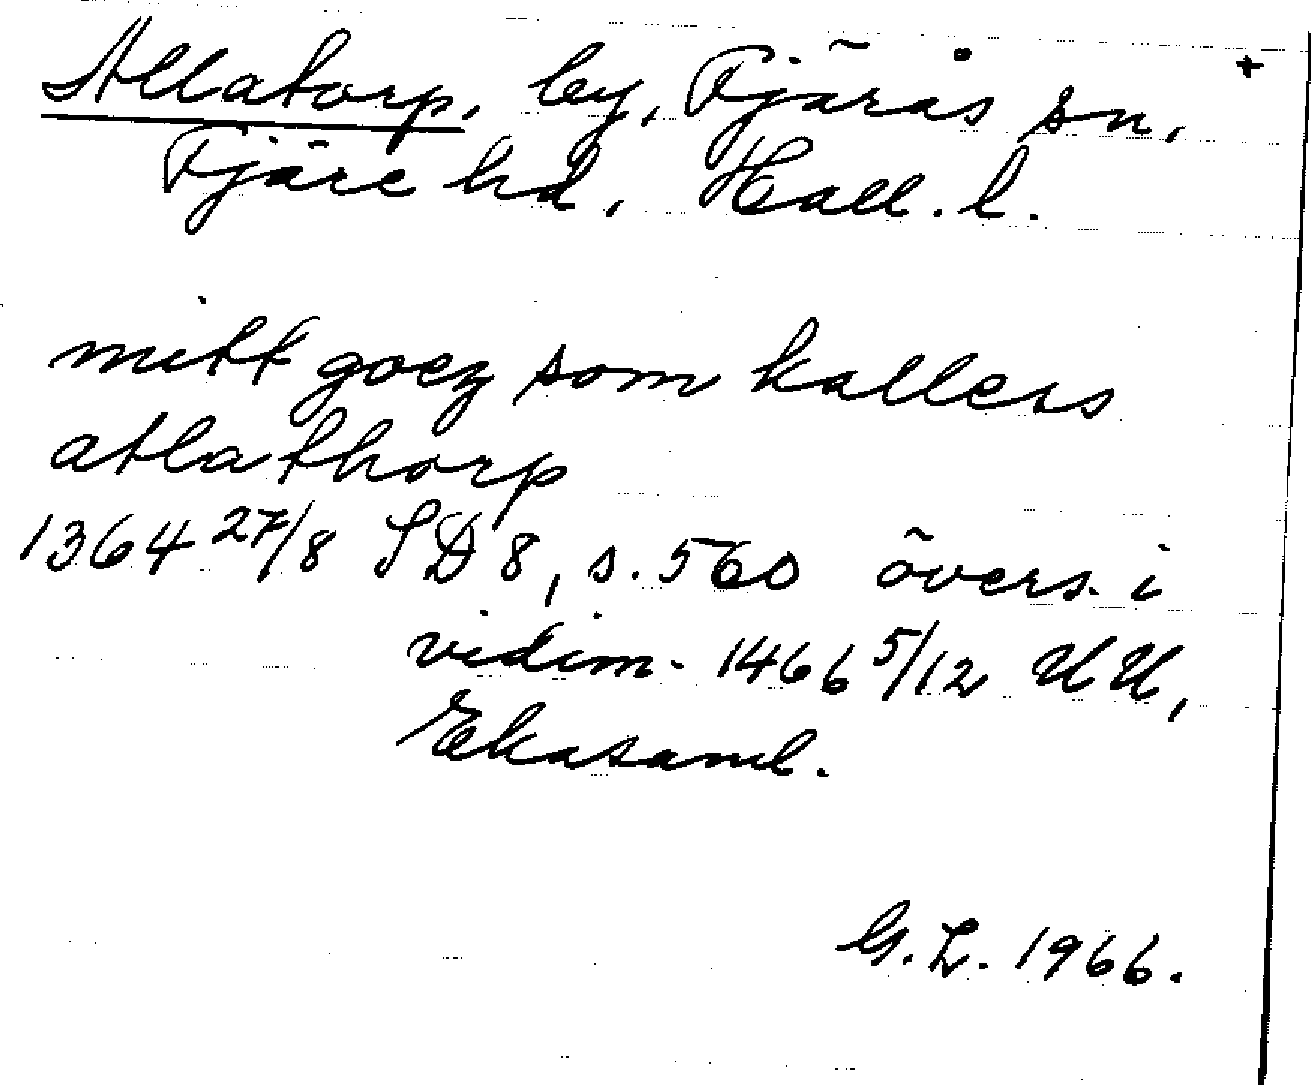 Allatorp, by, Fjärås sn, +
Fjäre hd, Hall. l.
mitt goez som kallers
atlathorp
1364 27/8 SD 8, s. 560 övers. i
vidim. 1466 5/12 UU,
Ekasaml.
G. L. 1966.